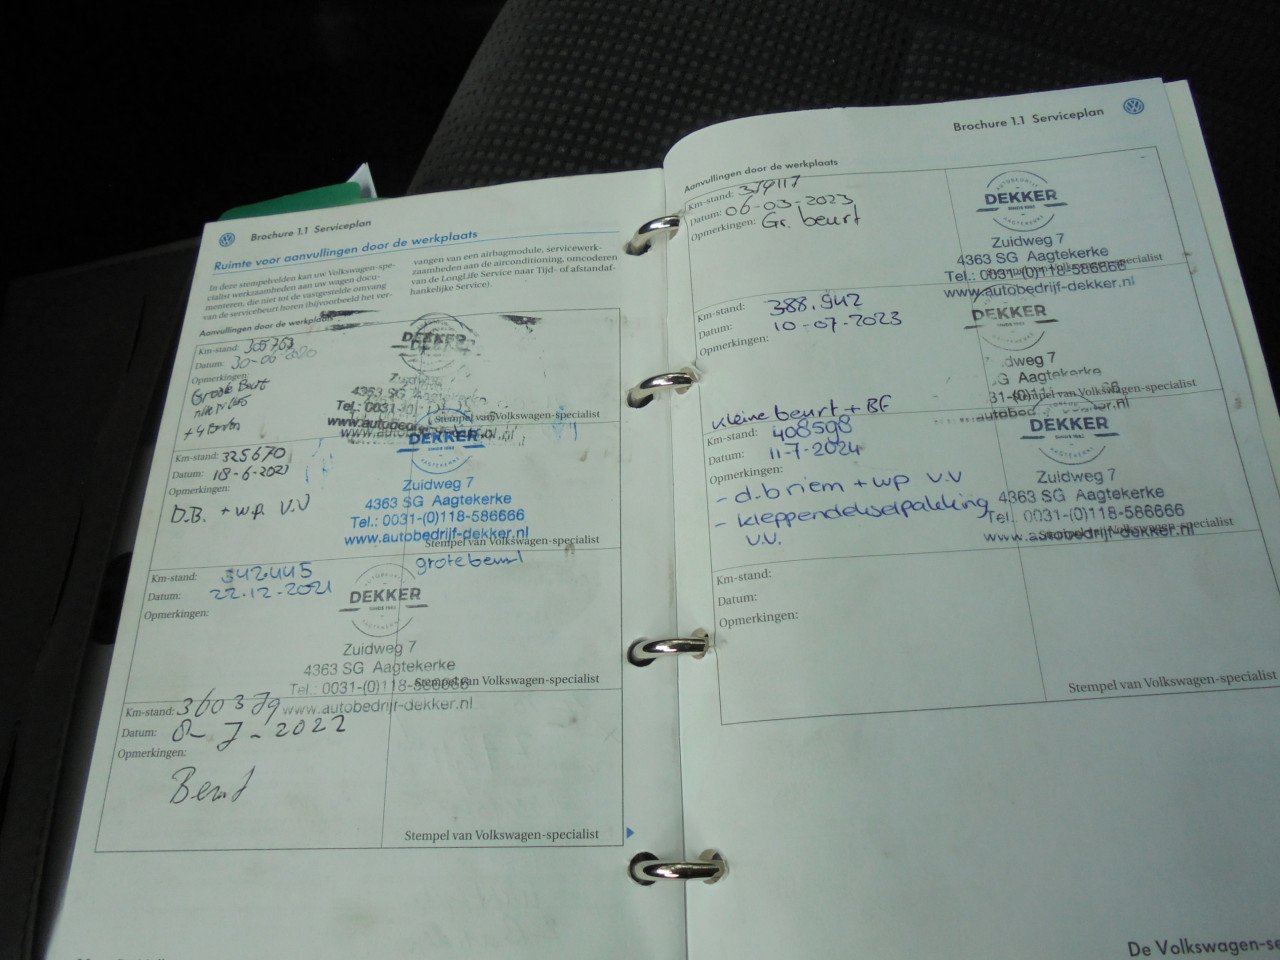 Brochure 1.1 Serviceplan
Ruimte voor aanvullingen door de werkplaats
In deze stempelvelden kan uw Volkswagen-spe-
cialist werkzaamheden aan uw wagen docu-
menteren, die niet tot de vastgestelde omvang
van de servicebeurt horen (bijvoorbeeld het ver-
vangen van een airbagmodule, servicewerk-
zaamheden aan de airconditioning, omcoderen
van de LongLife Service naar Tijd- of afstandaf-
hankelijke Service).
Aanvullingen door de werkplaats
Km-stand: 305763
Datum: 30-06-2020
Opmerkingen:
Groote Beurt
DEKKER
4363 SG Aagtekerke
Stempel van Volkswagen-specialist
Km-stand: 325670
Datum: 18-6-2021
Opmerkingen:
D.B. + w.p. V.V
DEKKER
AAGTEKERKE
Zuidweg 7
4363 SG Aagtekerke
Tel.: 0031-(0)118-586666
www.autobedrijf-dekker.nl
Stempel van Volkswagen-specialist
Km-stand: 342445
Datum: 22-12-2021
Opmerkingen:
grote beurt
DEKKER
SINDS 1982
AAGTEKERKE
Zuidweg 7
4363 SG Aagtekerke
Tel.: 0031-(0)118-586666
www.autobedrijf-dekker.nl
Stempel van Volkswagen-specialist
Km-stand: 360379
Datum: 8-7-2022
Opmerkingen:
Beurt
Stempel van Volkswagen-specialist
Brochure 1.1 Serviceplan
Aanvullingen door de werkplaats
Km-stand:
Datum: 06-03-2023
Opmerkingen: Gr. beurt
AUTOBEDRIJF
DEKKER
SINDS 1982
AAGTEKERKE
Zuidweg 7
4363 SG Aagtekerke
Tel.: 0031-(0)118-586666
www.autobedrijf-dekker.nl
Stempel van Volkswagen-specialist
Km-stand: 388.942
Datum: 10-07-2023
Opmerkingen:
kleine beurt + BF
DEKKER
Zuidweg 7
SG Aagtekerke
Stempel van Volkswagen-specialist
Km-stand: 408598
Datum: 11-7-2024
Opmerkingen:
- d.briem + wp v.v
- kleppendekselpakking
v.v.
DEKKER
SINDS 1982
AAGTEKERKE
Zuidweg 7
4363 SG Aagtekerke
Tel.: 0031-(0)118-586666
www.autobedrijf-dekker.nl
Stempel van Volkswagen-specialist
Km-stand:
Datum:
Opmerkingen:
Stempel van Volkswagen-specialist
De Volkswagen-se